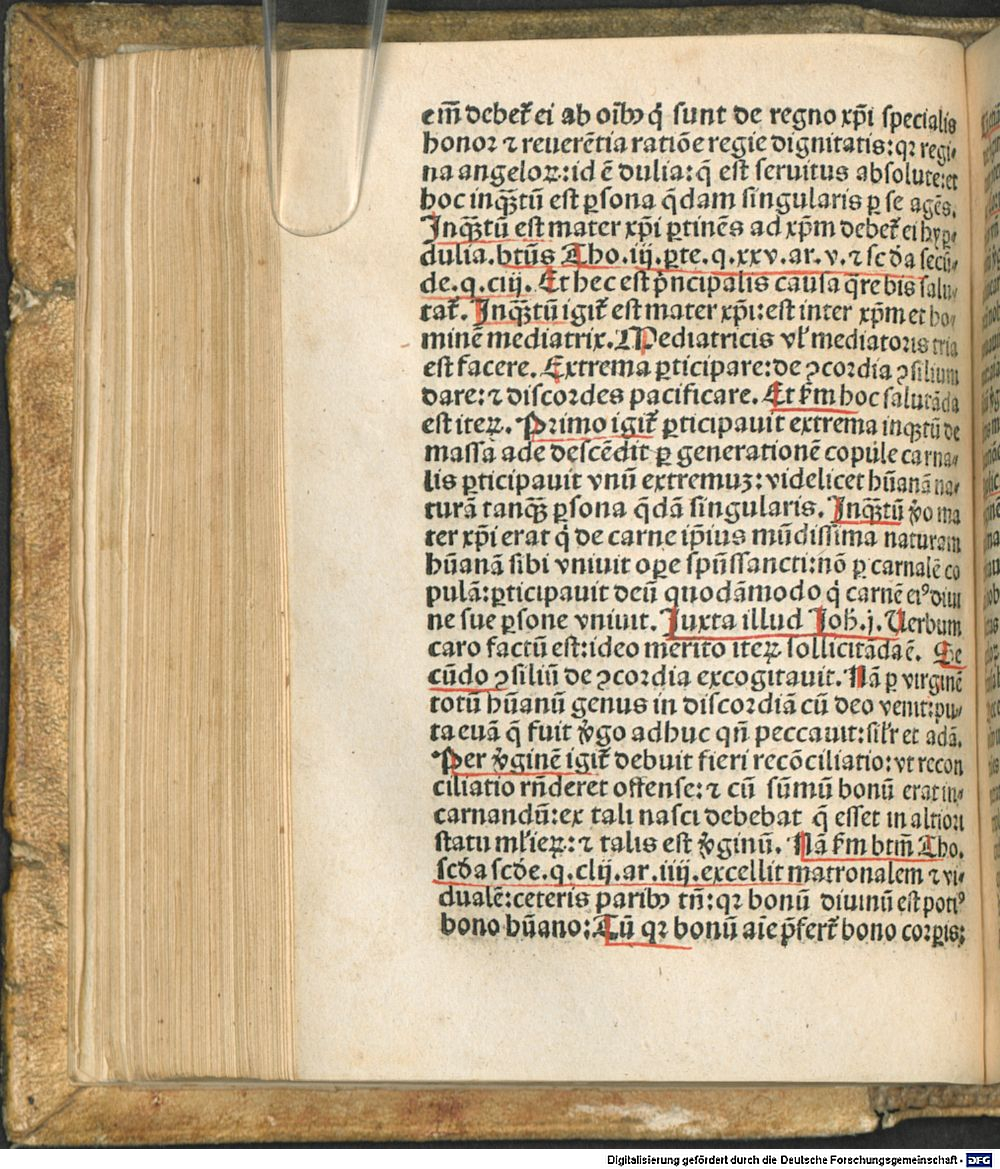 em̄ debet̄ ei ab oīb⁹ q̇ sunt de regno xp̄i specialis
honor ⁊ reuerētia ratiōe regie dignitatis: qꝛ regi⸗
na angeloꝝ: id ē dulia: q̄ est seruitus absolute: et
hoc inqꝫtū est ꝑsona q̄dam singularis ꝑ se agēs.
Inqꝫtū est mater xp̄i ꝑtinēs ad xp̄m debet̄ ei hyꝑ⸗
dulia. btūs Tho. iij. ꝑte. q. xxv. ar. v. ⁊ scd̄a secū⸗
de. q. ciij. Et hec est pͥncipalis causa q̄re bis salu⸗
tat̄. Inqꝫtū igit̄ est mater xp̄i: est inter xp̄m et ho⸗
minē mediatrix. Mediatricis vl̄ mediatoris tria
est facere. Extrema ꝑticipare: de ꝯcordia ꝯsilium
dare: ⁊ discordes pacificare. Et s̄m hoc salutāda
est iteꝝ. Primo igit̄ ꝑticipauit extrema inqꝫtū de
massa ade descēdit ꝑ generationē copule carna⸗
lis ꝑticipauit vnū extremuꝫ: videlicet hūanā na⸗
turā tanqꝫ ꝑsona q̄dā singularis. Inqꝫtū ꝟo ma
ter xp̄i erat q̇ de carne ip̄ius mūdissima naturam
hūanā sibi vniuit oꝑe spūssancti: nō ꝑ carnalē co
pulā: ꝑticipauit deū quodāmodo q̇ carnē ei⁹ diui
ne sue ꝑsone vniuit. Iuxta illud Joh̄. j. Uerbum
caro factū est: ideo merito iteꝝ sollicitāda ē. Se
cūdo ꝯsiliū de ꝯcordia excogitauit. Nā ꝑ virginē
totū hūanū genus in discordiā cū deo venit: pu⸗
ta euā q̄ fuit ꝟgo adhuc qn̄ peccauit: silr̄ et adā.
Per ꝟginē igit̄ debuit fieri recōciliatio: vt recon
ciliatio rn̄deret offense: ⁊ cū sūmū bonū erat in⸗
carnandū: ex tali nasci debebat q̄ esset in altiori
statu ml̄ieꝝ: ⁊ talis est ꝟginū. Nā s̄m btm̄ Tho.
scd̄a scd̄e. q. clij. ar. iiij. excellit matronalem ⁊ vi⸗
dualē: ceteris parib⁹ tn̄: qꝛ bonū diuinū est poti⁹
bono hūano: Tū qꝛ bonū aīe p̄fert̄ bono corꝑis:
Digitalisierung gefördert durch die Deutsche Forschungsgemeinschaft - DFG